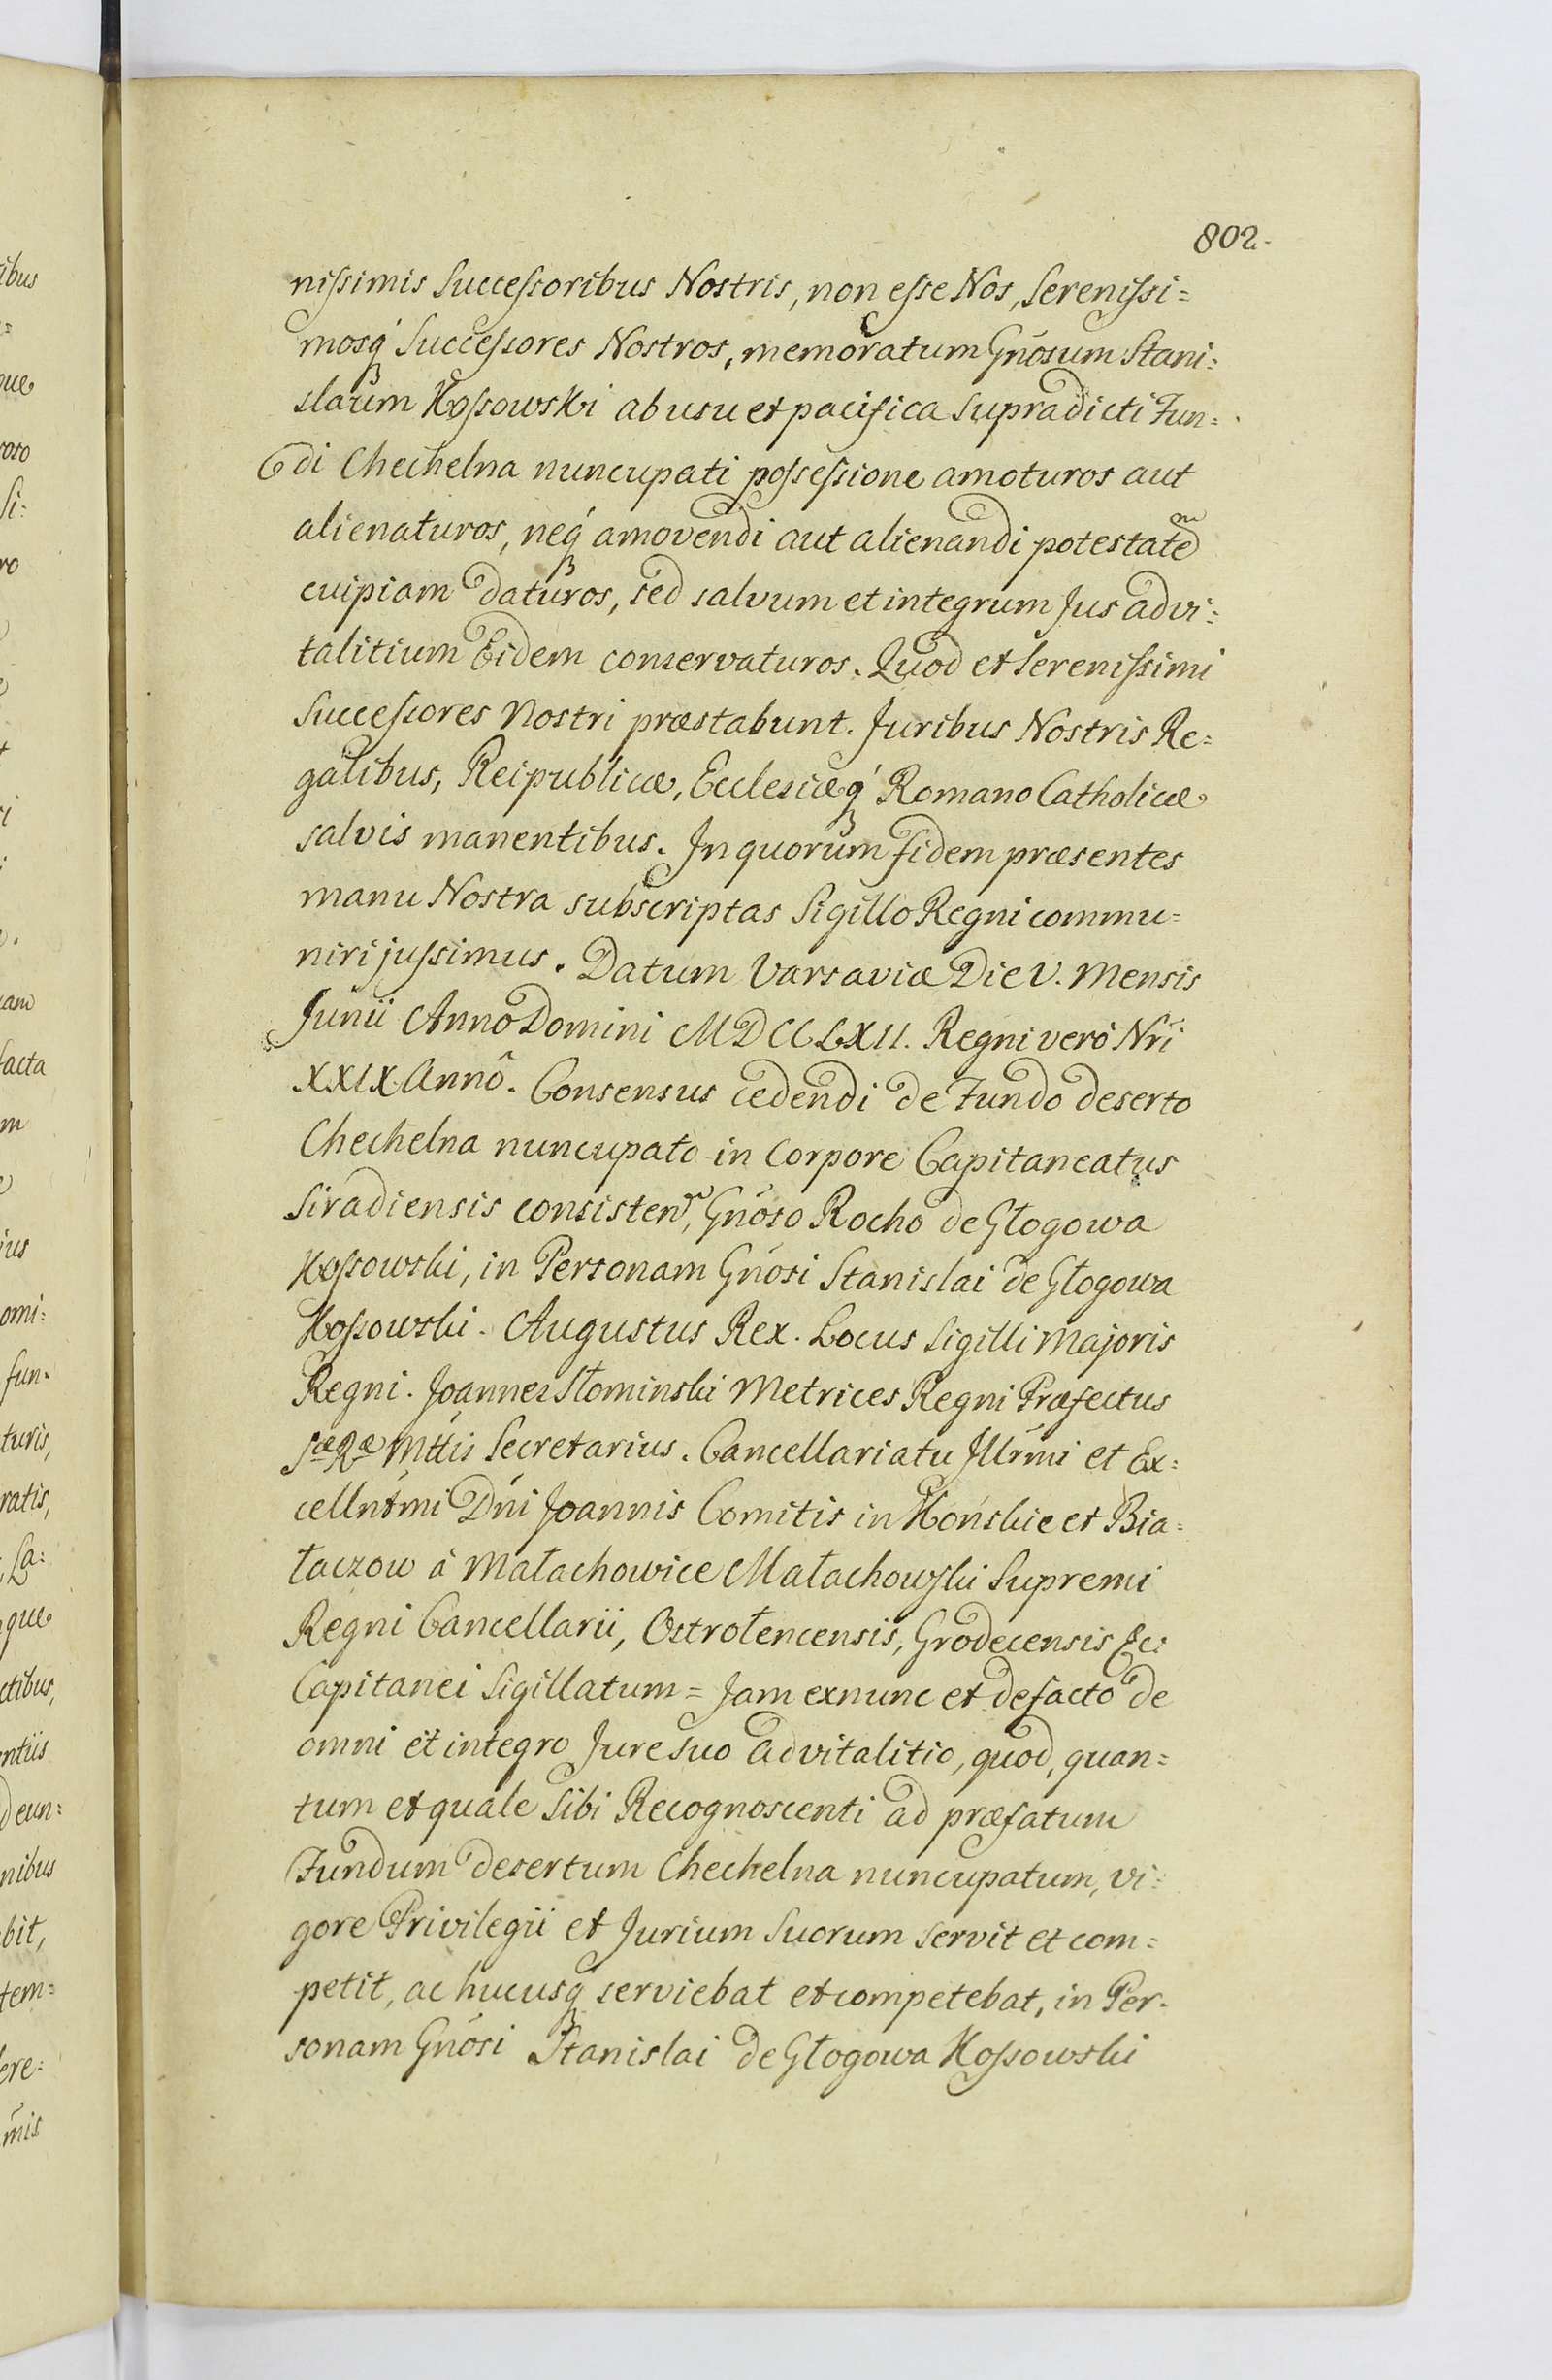 802.
nissimis Successoribus Nostris, non esse Nos, Serenissi=
mosq́ Successores Nostros, memoratum Gńosum Stani=
slaum Kossowski ab usu et pacifica supradicti Fun=
di Chechelna nuncupati possessione amoturos aut
alienaturos, neq́ amovendi aut alienandi potestatem
cuipiam daturos, sed salvum et integrum Jus advi=
talitium Eidem conservaturos. Quod et Serenissimi
Successores Nostri præstabunt. Juribus Nostris Re=
galibus, Reipublicæ, Ecclesiæq́ Romano Catholicæ
salvis manentibus. In quorum fidem præsentes
manu Nostra subscriptas Sigillo Regni commu=
niri jussimus. Datum Varsaviæ Die V. Mensis
Junii Anno Domini MDCCLXII. Regni verò Nŕi
XXIX Annô. Consensus cedendi de Fundo deserto
Chechelna nuncupato in Corpore Capitaneatus
Siradiensis consisten, Gńoso Rocho de Głogowa
Kossowski, in Personam Gńosi Stanislai de Głogowa
Kossowski. Augustus Rex. Locus Sigilli Majoris
Regni. Joannes Słominski Metrices Regni Præfectus
Sæ Ræ Mttis Secretarius. Cancellariatu Illŕmi et Ex=
cellńtmi Dńi Joannis Comitis in Końskie et Bia=
łaczow à Małachowice Małachowski Supremi
Regni Cancellarii, Ostrołencensis, Grodecensis &c:
Capitanei Sigillatum = Jam exnunc et defacto de
omni et integro Jure suo advitalitio, quod, quan=
tum et quale sibi Recognoscenti ad præfatum
Fundum desertum Chechelna nuncupatum, vi=
gore Privilegii et Jurium suorum servit et com=
petit, ac hucusq serviebat et competebat, in Per=
sonam Gńosi Stanislai de Głogowa Kossowski